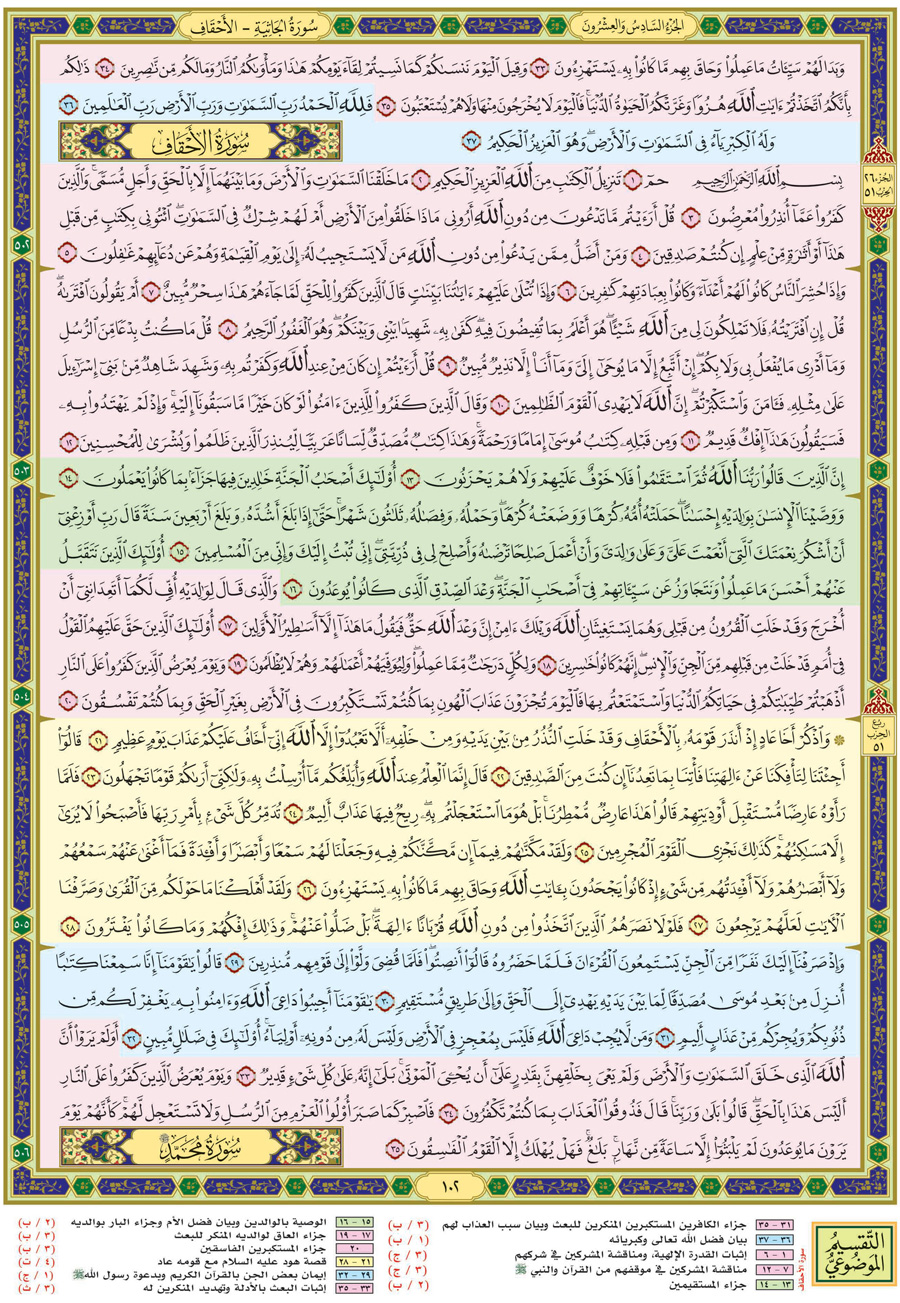 الجُزءُ السَّادِسُ وَالعِشْرُونَ
سُورَةُ الجَاثِيَةِ - الأَحْقَافِ
وَبَدَا لَهُمْ سَيِّـَٔاتُ مَا عَمِلُوا۟ وَحَاقَ بِهِم مَّا كَانُوا۟ بِهِۦ يَسْتَهْزِءُونَ ٣٣ وَقِيلَ ٱلْيَوْمَ نَنسَىٰكُمْ كَمَا نَسِيتُمْ لِقَآءَ يَوْمِكُمْ هَٰذَا وَمَأْوَىٰكُمُ ٱلنَّارُ وَمَا لَكُم مِّن نَّٰصِرِينَ ٣٤ ذَٰلِكُم
بِأَنَّكُمُ ٱتَّخَذْتُمْ ءَايَٰتِ ٱللَّهِ هُزُوًا وَغَرَّتْكُمُ ٱلْحَيَوٰةُ ٱلدُّنْيَا ۚ فَٱلْيَوْمَ لَا يُخْرَجُونَ مِنْهَا وَلَا هُمْ يُسْتَعْتَبُونَ ٣٥ فَلِلَّهِ ٱلْحَمْدُ رَبِّ ٱلسَّمَٰوَٰتِ وَرَبِّ ٱلْأَرْضِ رَبِّ ٱلْعَٰلَمِينَ ٣٦
وَلَهُ ٱلْكِبْرِيَآءُ فِى ٱلسَّمَٰوَٰتِ وَٱلْأَرْضِ ۖ وَهُوَ ٱلْعَزِيزُ ٱلْحَكِيمُ ٣٧
سُورَةُ الأَحْقَافِ
بِسْمِ ٱللَّهِ ٱلرَّحْمَٰنِ ٱلرَّحِيمِ حمٓ ١ تَنزِيلُ ٱلْكِتَٰبِ مِنَ ٱللَّهِ ٱلْعَزِيزِ ٱلْحَكِيمِ ٢ مَا خَلَقْنَا ٱلسَّمَٰوَٰتِ وَٱلْأَرْضَ وَمَا بَيْنَهُمَآ إِلَّا بِٱلْحَقِّ وَأَجَلٍ مُّسَمًّى ۚ وَٱلَّذِينَ
كَفَرُوا۟ عَمَّآ أُنذِرُوا۟ مُعْرِضُونَ ٣ قُلْ أَرَءَيْتُم مَّا تَدْعُونَ مِن دُونِ ٱللَّهِ أَرُونِى مَاذَا خَلَقُوا۟ مِنَ ٱلْأَرْضِ أَمْ لَهُمْ شِرْكٌ فِى ٱلسَّمَٰوَٰتِ ۖ ٱئْتُونِى بِكِتَٰبٍ مِّن قَبْلِ
هَٰذَآ أَوْ أَثَٰرَةٍ مِّنْ عِلْمٍ إِن كُنتُمْ صَٰدِقِينَ ٤ وَمَنْ أَضَلُّ مِمَّن يَدْعُوا۟ مِن دُونِ ٱللَّهِ مَن لَّا يَسْتَجِيبُ لَهُۥٓ إِلَىٰ يَوْمِ ٱلْقِيَٰمَةِ وَهُمْ عَن دُعَآئِهِمْ غَٰفِلُونَ ٥
وَإِذَا حُشِرَ ٱلنَّاسُ كَانُوا۟ لَهُمْ أَعْدَآءً وَكَانُوا۟ بِعِبَادَتِهِمْ كَٰفِرِينَ ٦ وَإِذَا تُتْلَىٰ عَلَيْهِمْ ءَايَٰتُنَا بَيِّنَٰتٍ قَالَ ٱلَّذِينَ كَفَرُوا۟ لِلْحَقِّ لَمَّا جَآءَهُمْ هَٰذَا سِحْرٌ مُّبِينٌ ٧ أَمْ يَقُولُونَ ٱفْتَرَىٰهُ ۖ
قُلْ إِنِ ٱفْتَرَيْتُهُۥ فَلَا تَمْلِكُونَ لِى مِنَ ٱللَّهِ شَيْـًٔا ۖ هُوَ أَعْلَمُ بِمَا تُفِيضُونَ فِيهِ ۖ كَفَىٰ بِهِۦ شَهِيدًۢا بَيْنِى وَبَيْنَكُمْ ۖ وَهُوَ ٱلْغَفُورُ ٱلرَّحِيمُ ٨ قُلْ مَا كُنتُ بِدْعًا مِّنَ ٱلرُّسُلِ
وَمَآ أَدْرِى مَا يُفْعَلُ بِى وَلَا بِكُمْ ۖ إِنْ أَتَّبِعُ إِلَّا مَا يُوحَىٰٓ إِلَىَّ وَمَآ أَنَا۠ إِلَّا نَذِيرٌ مُّبِينٌ ٩ قُلْ أَرَءَيْتُمْ إِن كَانَ مِنْ عِندِ ٱللَّهِ وَكَفَرْتُم بِهِۦ وَشَهِدَ شَاهِدٌ مِّنۢ بَنِىٓ إِسْرَٰٓءِيلَ
عَلَىٰ مِثْلِهِۦ فَـَٔامَنَ وَٱسْتَكْبَرْتُمْ ۖ إِنَّ ٱللَّهَ لَا يَهْدِى ٱلْقَوْمَ ٱلظَّٰلِمِينَ ١٠ وَقَالَ ٱلَّذِينَ كَفَرُوا۟ لِلَّذِينَ ءَامَنُوا۟ لَوْ كَانَ خَيْرًا مَّا سَبَقُونَآ إِلَيْهِ ۚ وَإِذْ لَمْ يَهْتَدُوا۟ بِهِۦ
فَسَيَقُولُونَ هَٰذَآ إِفْكٌ قَدِيمٌ ١١ وَمِن قَبْلِهِۦ كِتَٰبُ مُوسَىٰٓ إِمَامًا وَرَحْمَةً ۚ وَهَٰذَا كِتَٰبٌ مُّصَدِّقٌ لِّسَانًا عَرَبِيًّا لِّيُنذِرَ ٱلَّذِينَ ظَلَمُوا۟ وَبُشْرَىٰ لِلْمُحْسِنِينَ ١٢
إِنَّ ٱلَّذِينَ قَالُوا۟ رَبُّنَا ٱللَّهُ ثُمَّ ٱسْتَقَٰمُوا۟ فَلَا خَوْفٌ عَلَيْهِمْ وَلَا هُمْ يَحْزَنُونَ ١٣ أُو۟لَٰٓئِكَ أَصْحَٰبُ ٱلْجَنَّةِ خَٰلِدِينَ فِيهَا جَزَآءًۢ بِمَا كَانُوا۟ يَعْمَلُونَ ١٤
وَوَصَّيْنَا ٱلْإِنسَٰنَ بِوَٰلِدَيْهِ إِحْسَٰنًا ۖ حَمَلَتْهُ أُمُّهُۥ كُرْهًا وَوَضَعَتْهُ كُرْهًا ۖ وَحَمْلُهُۥ وَفِصَٰلُهُۥ ثَلَٰثُونَ شَهْرًا ۚ حَتَّىٰٓ إِذَا بَلَغَ أَشُدَّهُۥ وَبَلَغَ أَرْبَعِينَ سَنَةً قَالَ رَبِّ أَوْزِعْنِىٓ
أَنْ أَشْكُرَ نِعْمَتَكَ ٱلَّتِىٓ أَنْعَمْتَ عَلَىَّ وَعَلَىٰ وَٰلِدَىَّ وَأَنْ أَعْمَلَ صَٰلِحًا تَرْضَىٰهُ وَأَصْلِحْ لِى فِى ذُرِّيَّتِىٓ ۖ إِنِّى تُبْتُ إِلَيْكَ وَإِنِّى مِنَ ٱلْمُسْلِمِينَ ١٥ أُو۟لَٰٓئِكَ ٱلَّذِينَ نَتَقَبَّلُ
عَنْهُمْ أَحْسَنَ مَا عَمِلُوا۟ وَنَتَجَاوَزُ عَن سَيِّـَٔاتِهِمْ فِىٓ أَصْحَٰبِ ٱلْجَنَّةِ ۖ وَعْدَ ٱلصِّدْقِ ٱلَّذِى كَانُوا۟ يُوعَدُونَ ١٦ وَٱلَّذِى قَالَ لِوَٰلِدَيْهِ أُفٍّ لَّكُمَآ أَتَعِدَانِنِىٓ أَنْ
أُخْرَجَ وَقَدْ خَلَتِ ٱلْقُرُونُ مِن قَبْلِى وَهُمَا يَسْتَغِيثَانِ ٱللَّهَ وَيْلَكَ ءَامِنْ إِنَّ وَعْدَ ٱللَّهِ حَقٌّ فَيَقُولُ مَا هَٰذَآ إِلَّآ أَسَٰطِيرُ ٱلْأَوَّلِينَ ١٧ أُو۟لَٰٓئِكَ ٱلَّذِينَ حَقَّ عَلَيْهِمُ ٱلْقَوْلُ
فِىٓ أُمَمٍ قَدْ خَلَتْ مِن قَبْلِهِم مِّنَ ٱلْجِنِّ وَٱلْإِنسِ ۖ إِنَّهُمْ كَانُوا۟ خَٰسِرِينَ ١٨ وَلِكُلٍّ دَرَجَٰتٌ مِّمَّا عَمِلُوا۟ ۖ وَلِيُوَفِّيَهُمْ أَعْمَٰلَهُمْ وَهُمْ لَا يُظْلَمُونَ ١٩ وَيَوْمَ يُعْرَضُ ٱلَّذِينَ كَفَرُوا۟ عَلَى ٱلنَّارِ
أَذْهَبْتُمْ طَيِّبَٰتِكُمْ فِى حَيَاتِكُمُ ٱلدُّنْيَا وَٱسْتَمْتَعْتُم بِهَا فَٱلْيَوْمَ تُجْزَوْنَ عَذَابَ ٱلْهُونِ بِمَا كُنتُمْ تَسْتَكْبِرُونَ فِى ٱلْأَرْضِ بِغَيْرِ ٱلْحَقِّ وَبِمَا كُنتُمْ تَفْسُقُونَ ٢٠
۞ وَٱذْكُرْ أَخَا عَادٍ إِذْ أَنذَرَ قَوْمَهُۥ بِٱلْأَحْقَافِ وَقَدْ خَلَتِ ٱلنُّذُرُ مِنۢ بَيْنِ يَدَيْهِ وَمِنْ خَلْفِهِۦٓ أَلَّا تَعْبُدُوٓا۟ إِلَّا ٱللَّهَ إِنِّىٓ أَخَافُ عَلَيْكُمْ عَذَابَ يَوْمٍ عَظِيمٍ ٢١ قَالُوٓا۟
أَجِئْتَنَا لِتَأْفِكَنَا عَنْ ءَالِهَتِنَا فَأْتِنَا بِمَا تَعِدُنَآ إِن كُنتَ مِنَ ٱلصَّٰدِقِينَ ٢٢ قَالَ إِنَّمَا ٱلْعِلْمُ عِندَ ٱللَّهِ وَأُبَلِّغُكُم مَّآ أُرْسِلْتُ بِهِۦ وَلَٰكِنِّىٓ أَرَىٰكُمْ قَوْمًا تَجْهَلُونَ ٢٣ فَلَمَّا
رَأَوْهُ عَارِضًا مُّسْتَقْبِلَ أَوْدِيَتِهِمْ قَالُوا۟ هَٰذَا عَارِضٌ مُّمْطِرُنَا ۚ بَلْ هُوَ مَا ٱسْتَعْجَلْتُم بِهِۦ ۖ رِيحٌ فِيهَا عَذَابٌ أَلِيمٌ ٢٤ تُدَمِّرُ كُلَّ شَىْءٍۭ بِأَمْرِ رَبِّهَا فَأَصْبَحُوا۟ لَا يُرَىٰٓ
إِلَّا مَسَٰكِنُهُمْ ۚ كَذَٰلِكَ نَجْزِى ٱلْقَوْمَ ٱلْمُجْرِمِينَ ٢٥ وَلَقَدْ مَكَّنَّٰهُمْ فِيمَآ إِن مَّكَّنَّٰكُمْ فِيهِ وَجَعَلْنَا لَهُمْ سَمْعًا وَأَبْصَٰرًا وَأَفْـِٔدَةً فَمَآ أَغْنَىٰ عَنْهُمْ سَمْعُهُمْ
وَلَآ أَبْصَٰرُهُمْ وَلَآ أَفْـِٔدَتُهُم مِّن شَىْءٍ إِذْ كَانُوا۟ يَجْحَدُونَ بِـَٔايَٰتِ ٱللَّهِ وَحَاقَ بِهِم مَّا كَانُوا۟ بِهِۦ يَسْتَهْزِءُونَ ٢٦ وَلَقَدْ أَهْلَكْنَا مَا حَوْلَكُم مِّنَ ٱلْقُرَىٰ وَصَرَّفْنَا
ٱلْـَٔايَٰتِ لَعَلَّهُمْ يَرْجِعُونَ ٢٧ فَلَوْلَا نَصَرَهُمُ ٱلَّذِينَ ٱتَّخَذُوا۟ مِن دُونِ ٱللَّهِ قُرْبَانًا ءَالِهَةًۢ ۖ بَلْ ضَلُّوا۟ عَنْهُمْ ۚ وَذَٰلِكَ إِفْكُهُمْ وَمَا كَانُوا۟ يَفْتَرُونَ ٢٨
وَإِذْ صَرَفْنَآ إِلَيْكَ نَفَرًا مِّنَ ٱلْجِنِّ يَسْتَمِعُونَ ٱلْقُرْءَانَ فَلَمَّا حَضَرُوهُ قَالُوٓا۟ أَنصِتُوا۟ ۖ فَلَمَّا قُضِىَ وَلَّوْا۟ إِلَىٰ قَوْمِهِم مُّنذِرِينَ ٢٩ قَالُوا۟ يَٰقَوْمَنَآ إِنَّا سَمِعْنَا كِتَٰبًا
أُنزِلَ مِنۢ بَعْدِ مُوسَىٰ مُصَدِّقًا لِّمَا بَيْنَ يَدَيْهِ يَهْدِىٓ إِلَى ٱلْحَقِّ وَإِلَىٰ طَرِيقٍ مُّسْتَقِيمٍ ٣٠ يَٰقَوْمَنَآ أَجِيبُوا۟ دَاعِىَ ٱللَّهِ وَءَامِنُوا۟ بِهِۦ يَغْفِرْ لَكُم مِّن
ذُنُوبِكُمْ وَيُجِرْكُم مِّنْ عَذَابٍ أَلِيمٍ ٣١ وَمَن لَّا يُجِبْ دَاعِىَ ٱللَّهِ فَلَيْسَ بِمُعْجِزٍ فِى ٱلْأَرْضِ وَلَيْسَ لَهُۥ مِن دُونِهِۦٓ أَوْلِيَآءُ ۚ أُو۟لَٰٓئِكَ فِى ضَلَٰلٍ مُّبِينٍ ٣٢ أَوَلَمْ يَرَوْا۟ أَنَّ
ٱللَّهَ ٱلَّذِى خَلَقَ ٱلسَّمَٰوَٰتِ وَٱلْأَرْضَ وَلَمْ يَعْىَ بِخَلْقِهِنَّ بِقَٰدِرٍ عَلَىٰٓ أَن يُحْـِۧىَ ٱلْمَوْتَىٰ ۚ بَلَىٰٓ إِنَّهُۥ عَلَىٰ كُلِّ شَىْءٍ قَدِيرٌ ٣٣ وَيَوْمَ يُعْرَضُ ٱلَّذِينَ كَفَرُوا۟ عَلَى ٱلنَّارِ
أَلَيْسَ هَٰذَا بِٱلْحَقِّ ۖ قَالُوا۟ بَلَىٰ وَرَبِّنَا ۚ قَالَ فَذُوقُوا۟ ٱلْعَذَابَ بِمَا كُنتُمْ تَكْفُرُونَ ٣٤ فَٱصْبِرْ كَمَا صَبَرَ أُو۟لُوا۟ ٱلْعَزْمِ مِنَ ٱلرُّسُلِ وَلَا تَسْتَعْجِل لَّهُمْ ۚ كَأَنَّهُمْ يَوْمَ
يَرَوْنَ مَا يُوعَدُونَ لَمْ يَلْبَثُوٓا۟ إِلَّا سَاعَةً مِّن نَّهَارٍۭ ۚ بَلَٰغٌ ۚ فَهَلْ يُهْلَكُ إِلَّا ٱلْقَوْمُ ٱلْفَٰسِقُونَ ٣٥
سُورَةُ مُحَمَّدٍ ﷺ
الجُزء ٢٦
الحِزْب ٥١
رُبْع
الحِزْب
٥١
٥٠٢
٥٠٣
٥٠٤
٥٠٥
٥٠٦
١٠٢
التَّقْسِيمُ
المَوْضُوعِيُّ
٣١ - ٣٥ جزاء الكافرين المستكبرين المنكرين للبعث وبيان سبب العذاب لهم (٣ / ب)
٣٦ - ٣٧ بيان فضل الله تعالى وكبريائه (١ / ب)
سورة الأحقاف
١ - ٦ إثبات القدرة الإلهية، ومناقشة المشركين في شركهم (٣ / ج)
٧ - ١٢ مناقشة المشركين في موقفهم من القرآن والنبي ﷺ (٣ / ج)
١٣ - ١٤ جزاء المستقيمين (٢ / ب)
١٥ - ١٦ الوصية بالوالدين وبيان فضل الأم وجزاء البار بوالديه (٢ / ب)
١٧ - ١٩ جزاء العاق لوالديه المنكر للبعث (٣ / ب)
٢٠ جزاء المستكبرين الفاسقين (٣ / ب)
٢١ - ٢٨ قصة هود عليه السلام مع قومه عاد (٤ / ت)
٢٩ - ٣٢ إيمان بعض الجن بالقرآن الكريم وبدعوة رسول الله ﷺ (١ / ج)
٣٣ - ٣٥ إثبات البعث بالأدلة وتهديد المنكرين له (٣ / ث)